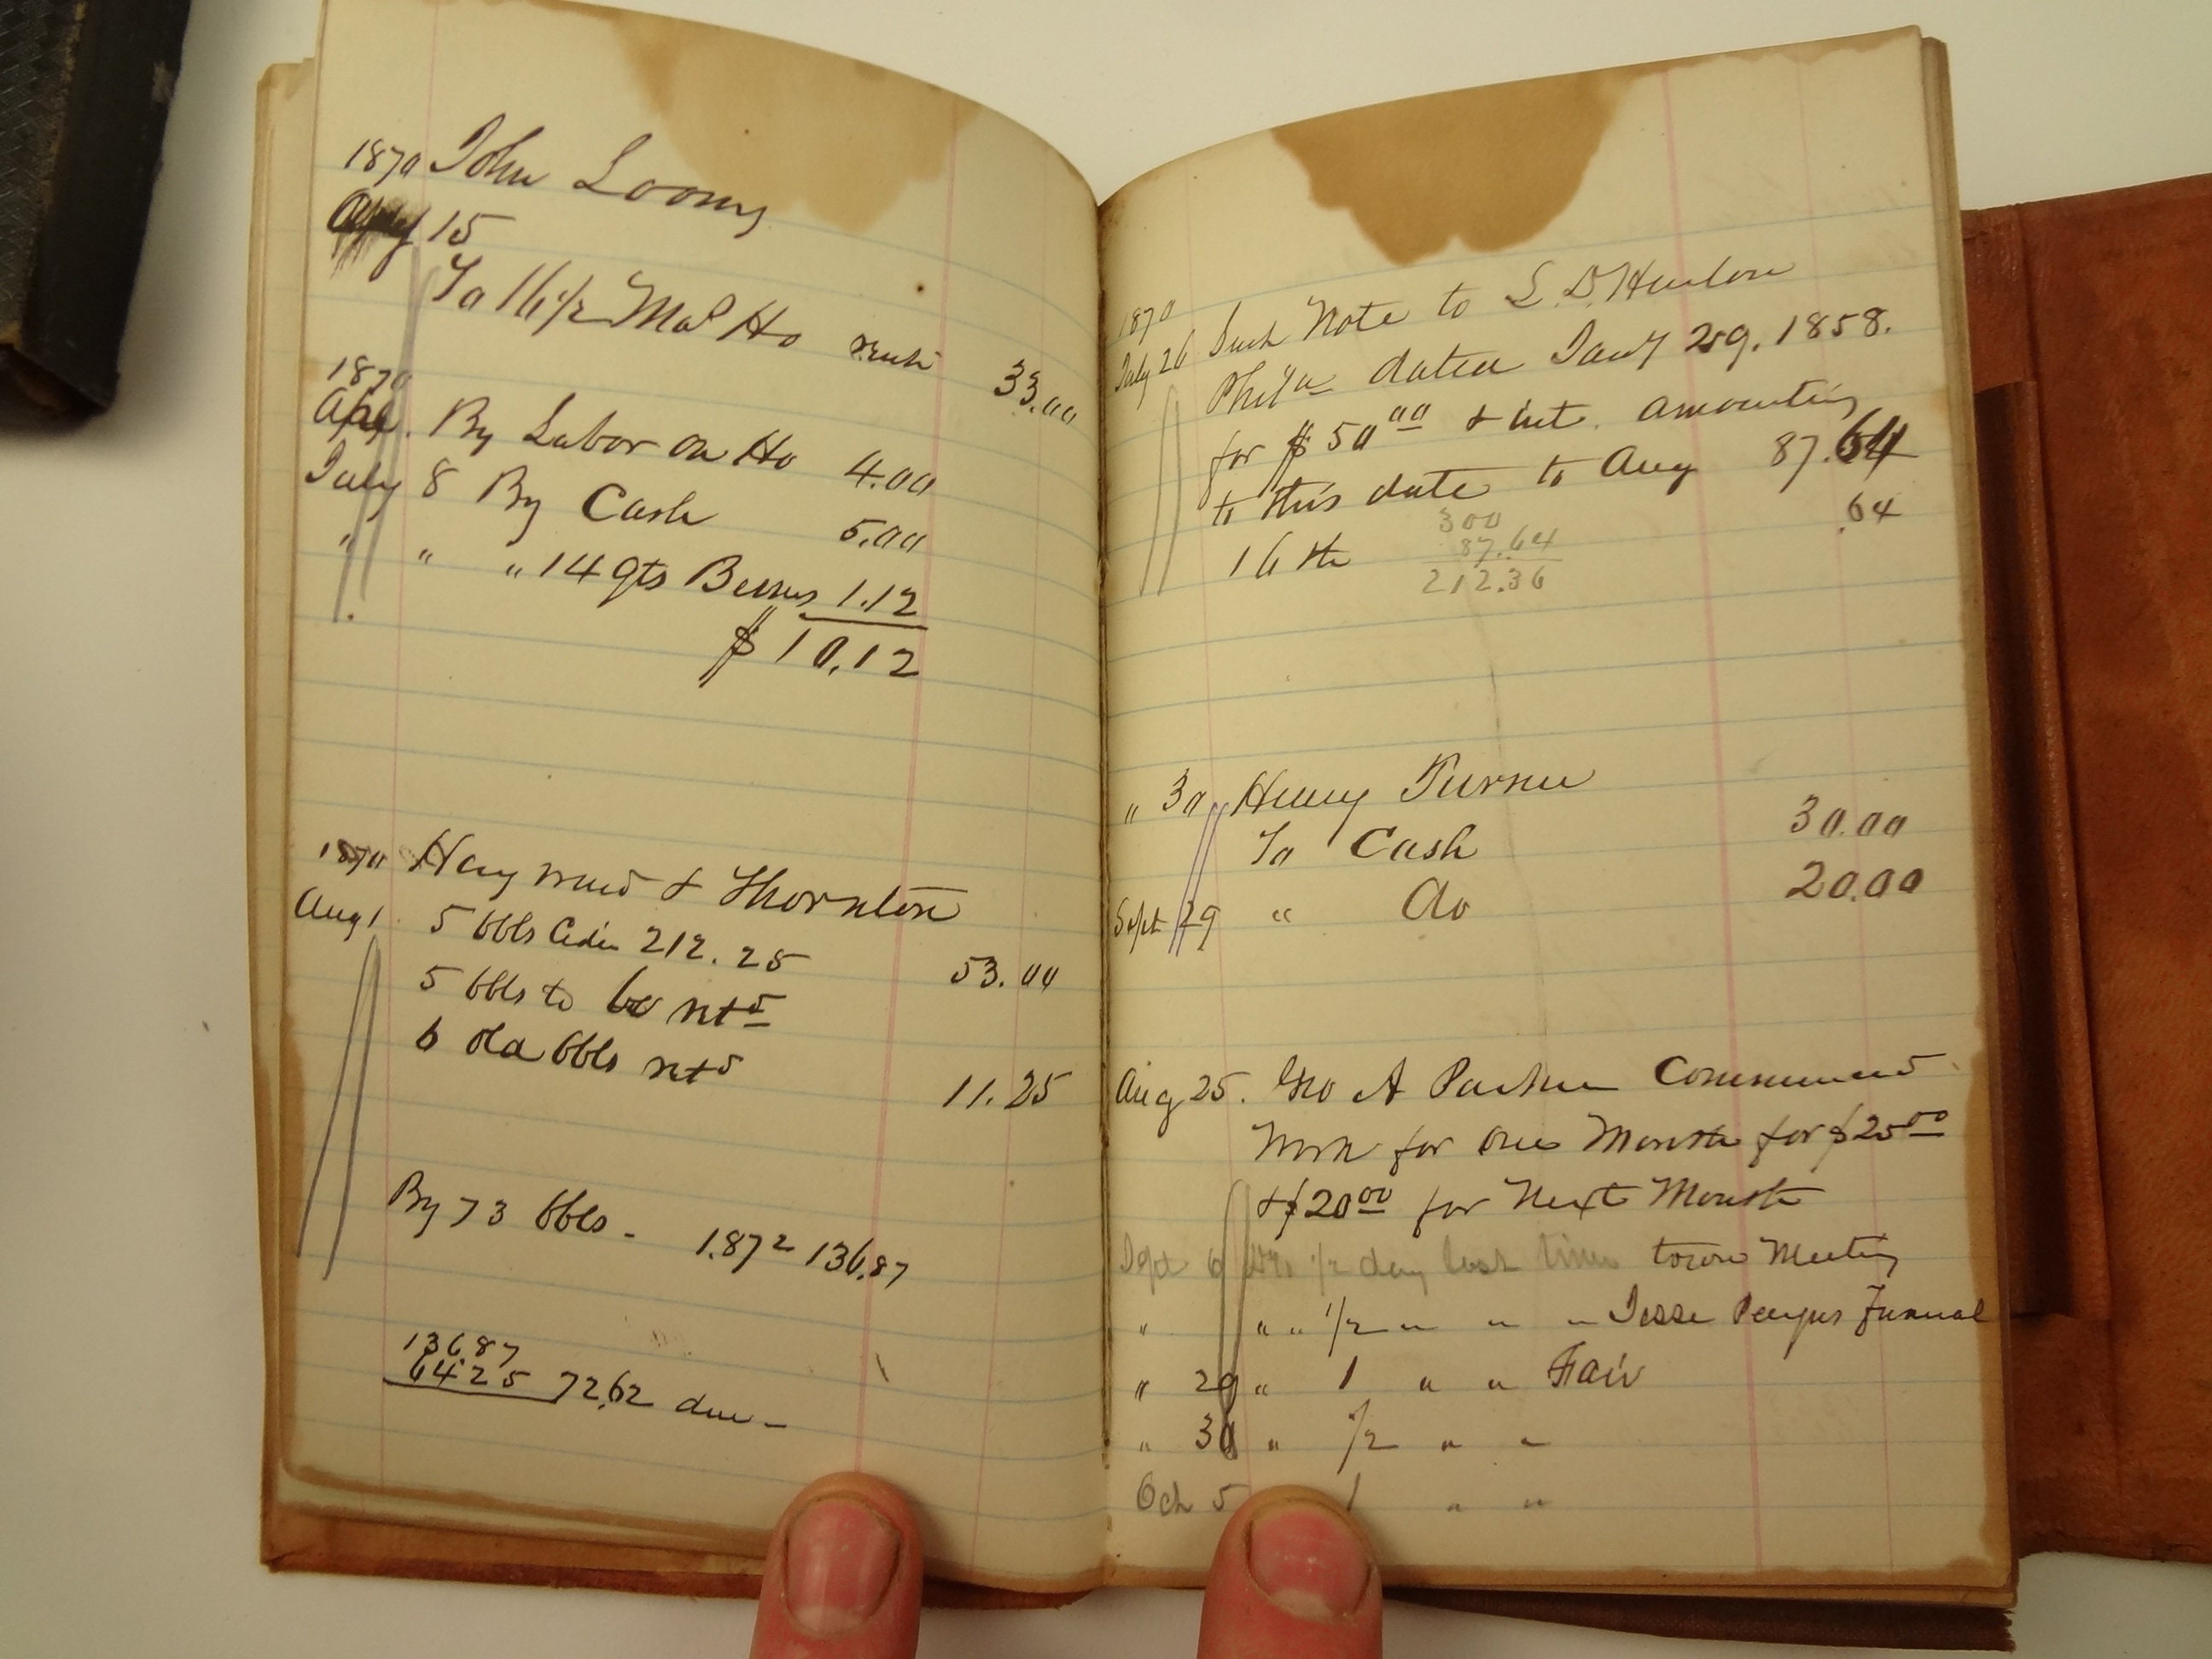 1870 John Loomy
Apl 15
To 16 1/2 Mos Ho rent 33.00
1870
Apl. By Labor on Ho 4.00
July 8 By Cash 5.00
" " " 14 qts Berries 1.12
$ 10.12
1870 Hayward & Thornton
Aug 1. 5 bbls Cider 212. 25 53.00
5 bbls to be retd
6 old bbls retd
11.25
By 73 bbls - 1.87 2 136.87
136.87
64.25 72.62 due -
1870
July 26 Note to L. D.
Phila dated Jany 29. 1858.
for $ 50 00 & int. amounting
to this date to Aug 87.64
16 th .64
300
87.64
212.36
" 30 Henry Turner
To Cash 30.00
Sept 29 " Do 20.00
Aug 25. Geo A Parker Commenced
Work for one Month for $25 00
& $20 00 for Next Month
Sept 6 1/2 day lost time town Meeting
" " " 1/2 " " " Jesse Funeral
" 29 " 1 " " Fair
" 30 " 1/2 " "
Oct 5 1 " "